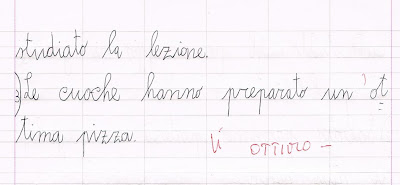 studiato la lezione.
3) Le cuoche hanno preparato un'ot
tima pizza.
Vi OTTIMO